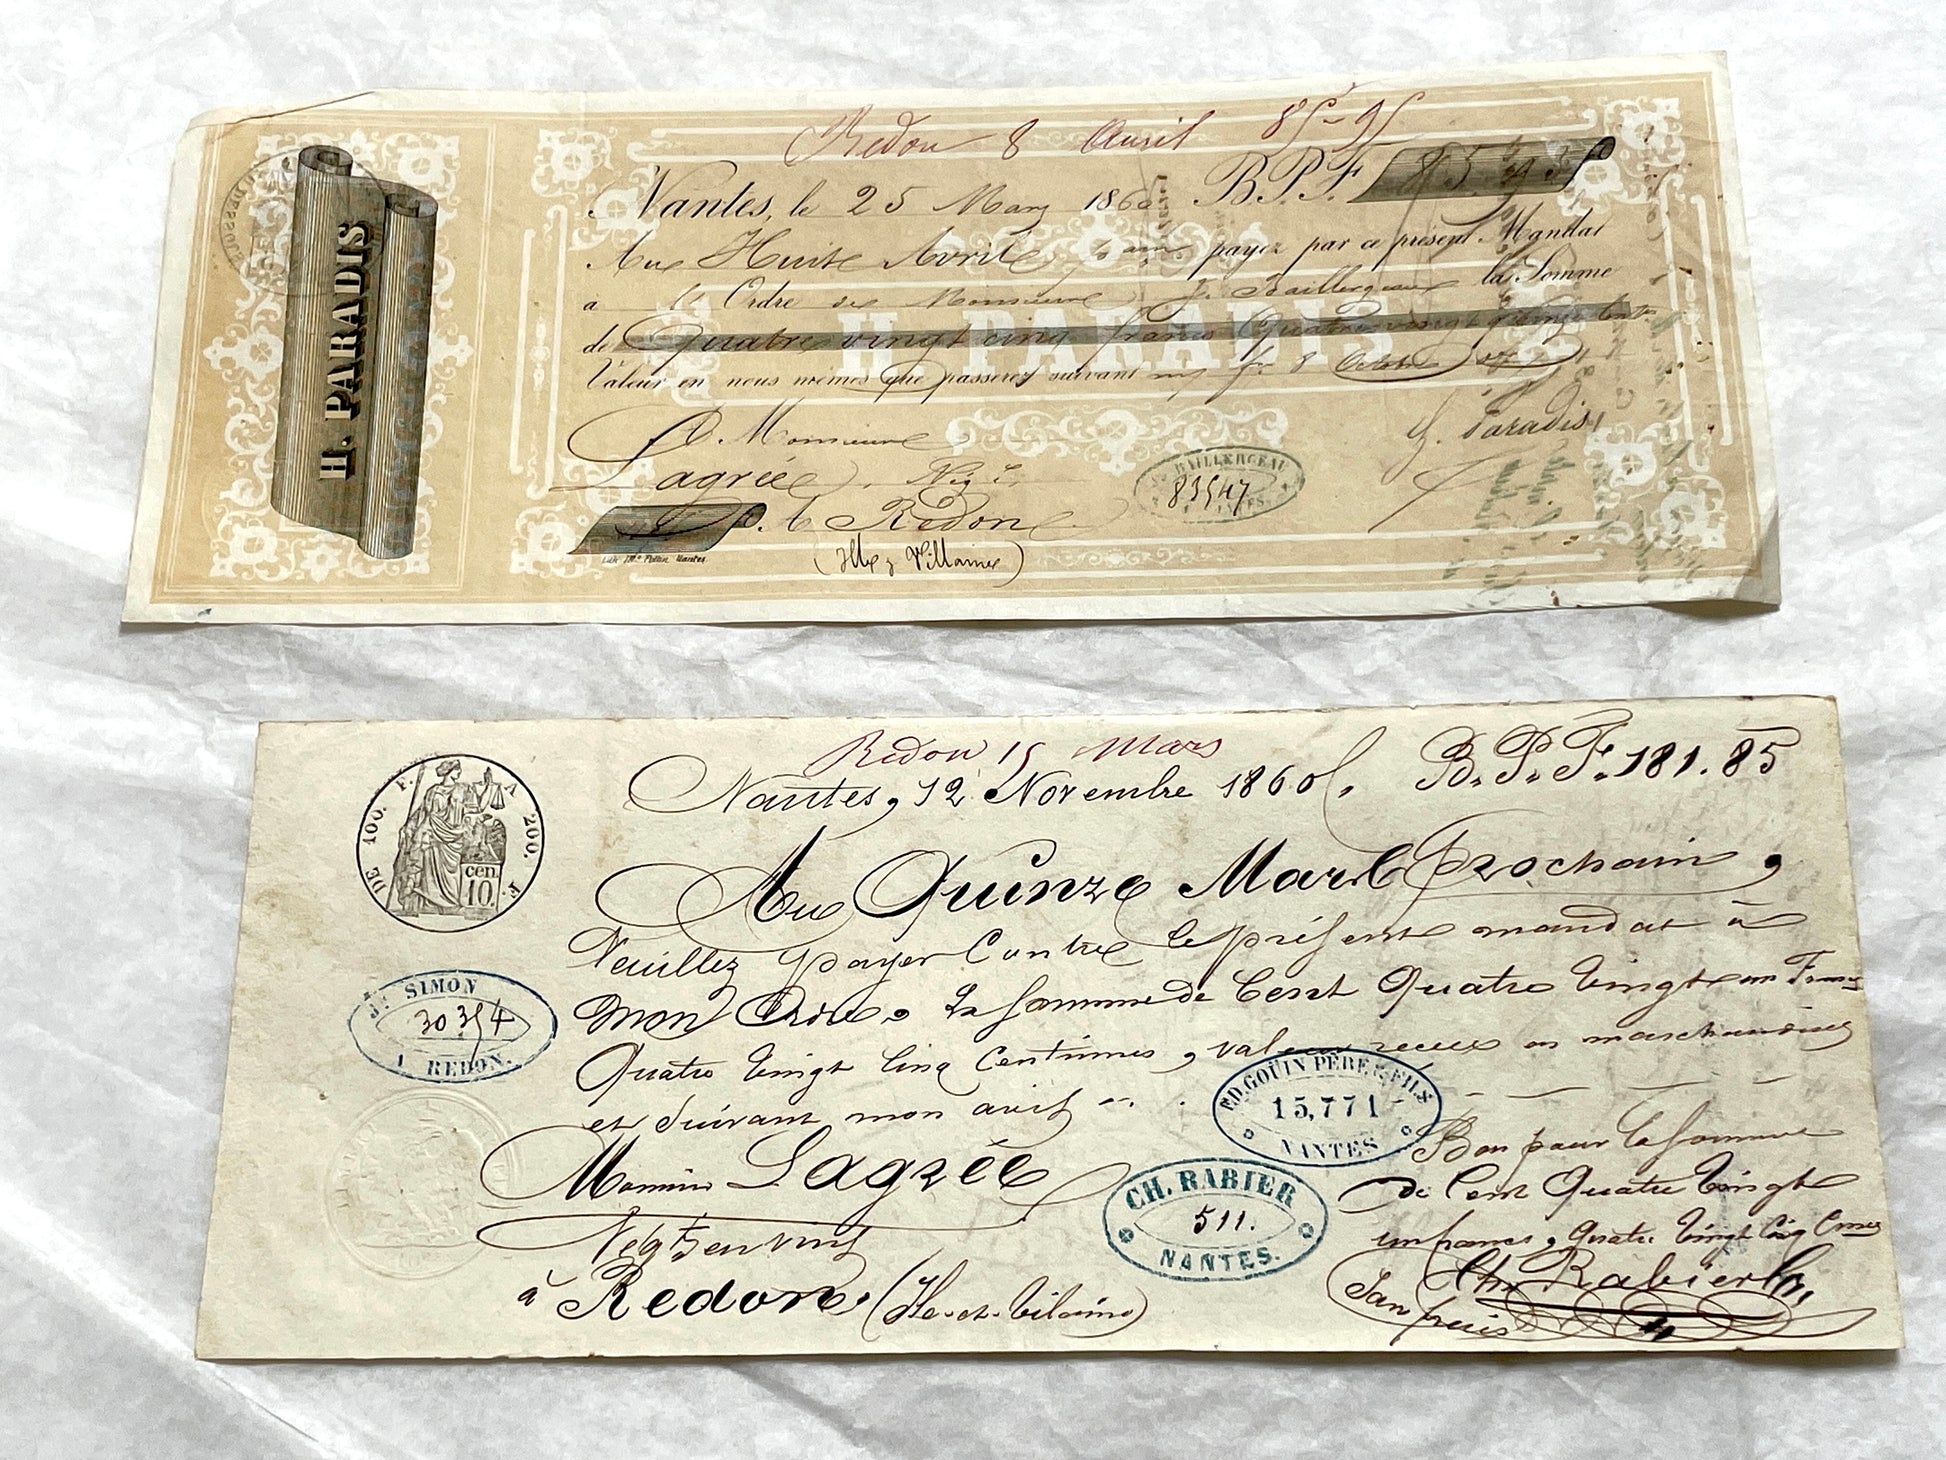 Redon 8 Avril 85-95
Nantes, le 25 Mars 1860 B.P.F 85.95
Au Huit Avril payez par ce présent Mandat
a l'Ordre de Monsieur J. Baillergeau la Somme
de Quatre vingt cinq francs Quatre vingt quinze Cent
Valeur en nous mêmes que passerez suivant
H. PARADIS
H. PARADIS
A Monsieur
H. Paradis
Lagrée, Négt
BAILLERGEAU
83547
NANTES
A Redon
(Ille & Villaine)
Nantes
Redon 15 Mars
Nantes, 12 Novembre 1860, B.P.F. 181.85
DE 100. F. A 200. F.
cen. 10.
Au Quinze Mars Prochain,
Veuillez payer Contre le présent mandat à
mon Ordre, La somme de Cent Quatre Vingt un Francs
Quatre Vingt Cinq Centimes, valeur recue en marchandises
et Suivant mon avis
Jh SIMON
30354
A REDON.
ED. GOÜIN PÈRE & FILS
15,771
NANTES
Monsieur Lagrée
Negt en vins
à Redon (Ile-et-Vilaine)
CH. RABIER
511.
NANTES.
Bon pour la somme
de Cent Quatre Vingt
un francs, Quatre Vingt Cinq Cmes
Ch. Rabier
San frais